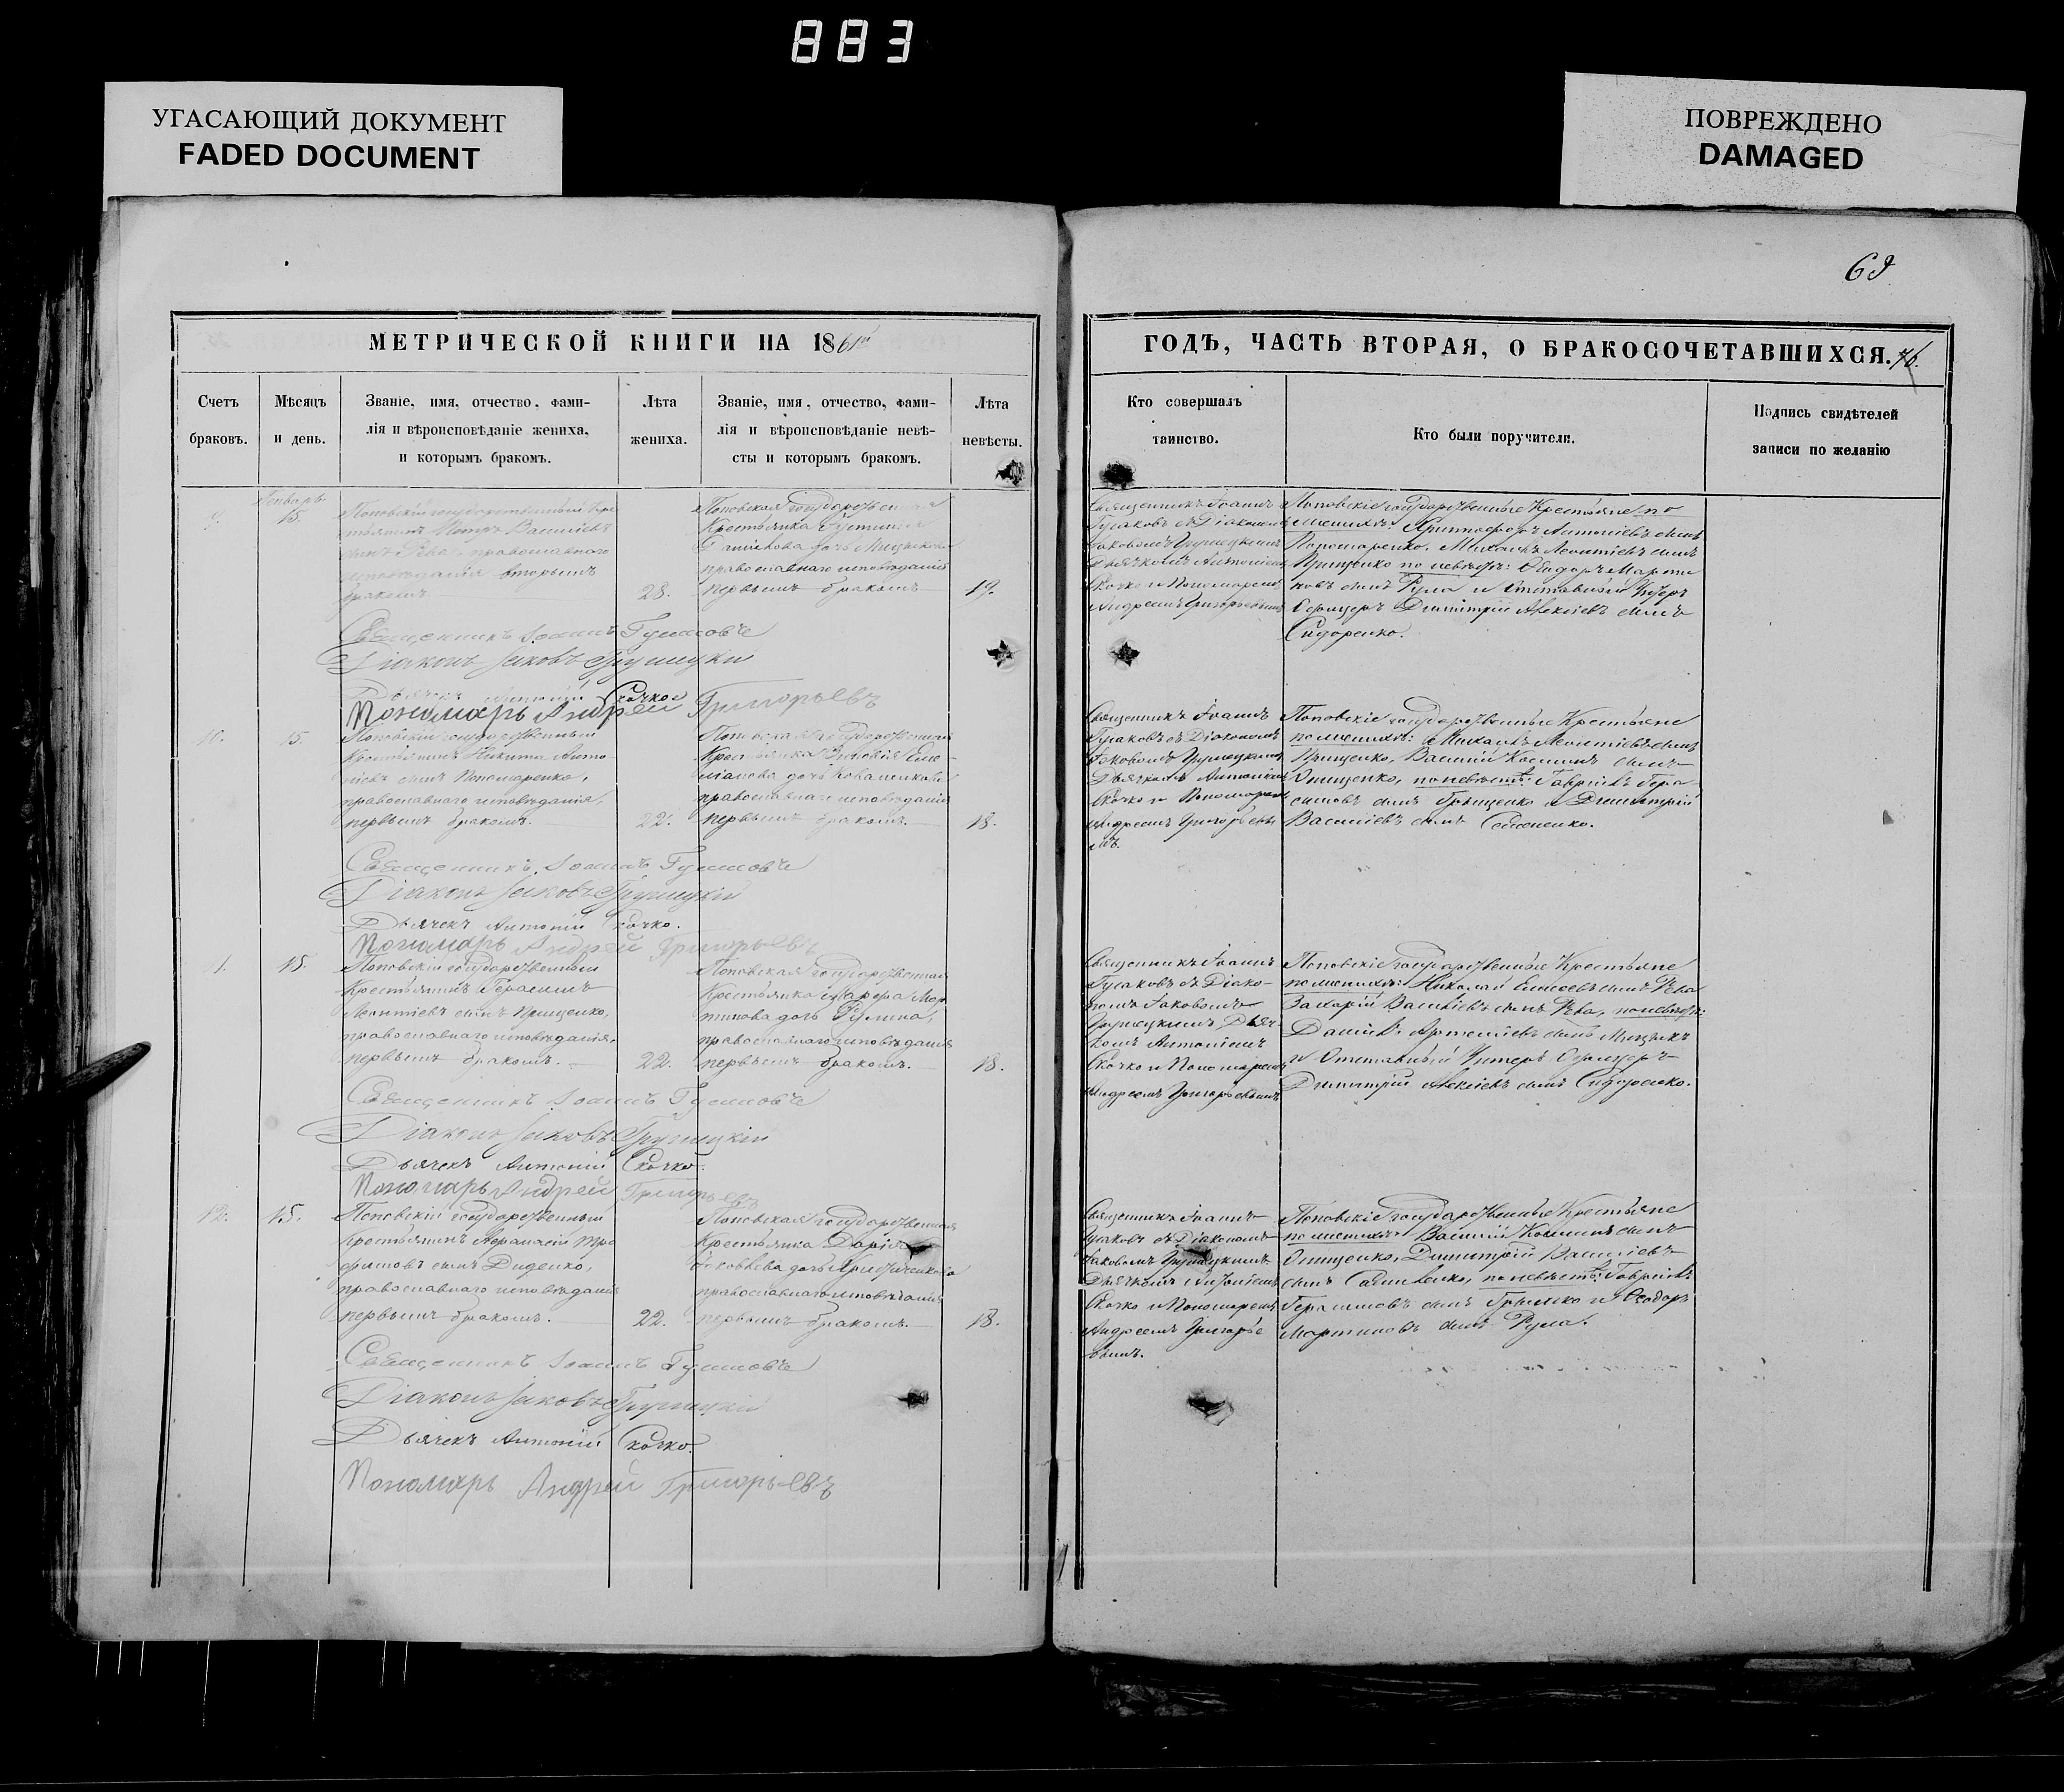 883
УГАСАЮЩИЙ ДОКУМЕНТ
FADED DOCUMENT
ПОВРЕЖДЕНО
DAMAGED
69
МЕТРИЧЕСКОЙ КНИГИ НА 1861й
Счетъ браковъ.
Мѣсяцъ и день.
Званіе, имя, отчество, фами-
лія и вѣроисповѣданіе жениха,
и которымъ бракомъ.
Лѣта жениха.
Званіе, имя, отчество, фами-
лія и вѣроисповѣданіе невѣ-
сты и которымъ бракомъ.
Лѣта невѣсты.
9.
Январь
15.
Поповскій государственный Кре
стьянинъ Петръ Василіевъ
сынъ Рева, православнаго
исповѣданія вторымъ
бракомъ
28.
Поповская государственная
Крестьянка Устинія
Даніилова дочь
православнаго исповѣданія
первымъ бракомъ
19.
Священникъ Іоаннъ
Діаконъ Іаковъ Грушецкій
Дьячекъ Антоній Скочко
Пономарь Андрей Григорьевъ
10.
15.
Поповскій государственный
Крестьянинъ Никита Анто
ніевъ сынъ Пономаренко,
православнаго исповѣданія,
первымъ бракомъ.
22.
Поповская государственная
Крестьянка Зиновія Еме
ліанова дочь
православнаго исповѣданія
первымъ бракомъ.
18.
Священникъ Іоаннъ
Діаконъ Іаковъ Грушецкій
Дьячекъ Антоній Скочко.
Пономарь Андрей Григорьевъ
11.
15.
Поповскій государственный
Крестьянинъ Герасимъ
Леонтіевъ сынъ Прищенко,
православнаго исповѣданія,
первымъ бракомъ.
22.
Поповская государственная
Крестьянка Гликерія Мар
тинова дочь
православнаго исповѣданія
первымъ бракомъ.
18.
Священникъ Іоаннъ
Діаконъ Іаковъ Грушецкій
Дьячекъ Антоній Скочко.
Пономарь Андрей Григорьевъ
12.
15.
Поповскій государственный
Крестьянинъ Тро
фимовъ сынъ Диденко,
православнаго исповѣданія
первымъ бракомъ.
22.
Поповская государственная
Крестьянка Дарія
Іаковлева дочь
православнаго исповѣданія
первымъ бракомъ.
18.
Священникъ Іоаннъ
Діаконъ Іаковъ Грушецкій
Дьячекъ Антоній Скочко.
Пономарь Андрей Григорьевъ
ГОДЪ, ЧАСТЬ ВТОРАЯ, О БРАКОСОЧЕТАВШИХСЯ.
Кто совершалъ таинство.
Кто были поручители.
Подпись свидѣтелей записи по желанію
Священникъ Іоаннъ
съ Діакономъ
Іаковомъ Грушецкимъ
Дьячкомъ Антоніемъ
Скочко и Пономаремъ
Андреемъ Григорьевымъ
Поповскіе государственные Крестьяне по
женихѣ: Христофоръ Антоніевъ сынъ
Пономаренко, Михаилъ Леонтіевъ сынъ
Прищенко по невѣстѣ: Ѳеодоръ Марти
новъ сынъ Рула и Отставный Унтеръ
Офицеръ Димитрій Алексіевъ сынъ
Сидоренко.
Священникъ Іоаннъ
съ Діакономъ
Іаковомъ Грушецкимъ
Дьячкомъ Антоніемъ
Скочко и Пономаремъ
Андреемъ Григорьевы
мъ.
Поповскіе государственные Крестьяне
по женихѣ: Михаилъ Леонтіевъ сынъ
Прищенко, Василій Косминъ сынъ
Онищенко, по невѣстѣ: Гавріилъ Гера
симовъ сынъ Грищенко и Димитрій
Василіевъ сынъ
Священникъ Іоаннъ
съ Діако-
номъ Іаковомъ
Грушецкимъ Дьяч-
комъ Антоніемъ
Скочко и Пономаремъ
Андреемъ Григорьевымъ
Поповскіе государственные Крестьяне
по женихѣ: Николай сынъ Рева
Захарій Василіевъ сынъ Рева, по невѣстѣ:
Даніилъ Артеміевъ сынъ
и Отставный Унтеръ Офицеръ
Димитрій Алексіевъ сынъ Сидоренко.
Священникъ Іоаннъ
съ Діакономъ
Іаковомъ Грушецкимъ
Дьячкомъ Антоніемъ
Скочко и Пономаремъ
Андреемъ Григорье
вымъ.
Поповскіе государственные Крестьяне
по женихѣ: Василій Косминъ сынъ
Онищенко, Димитрій Василіевъ
сынъ по невѣстѣ: Гавріилъ
Герасимовъ сынъ и Ѳеодоръ
Мартиновъ сынъ Рула.